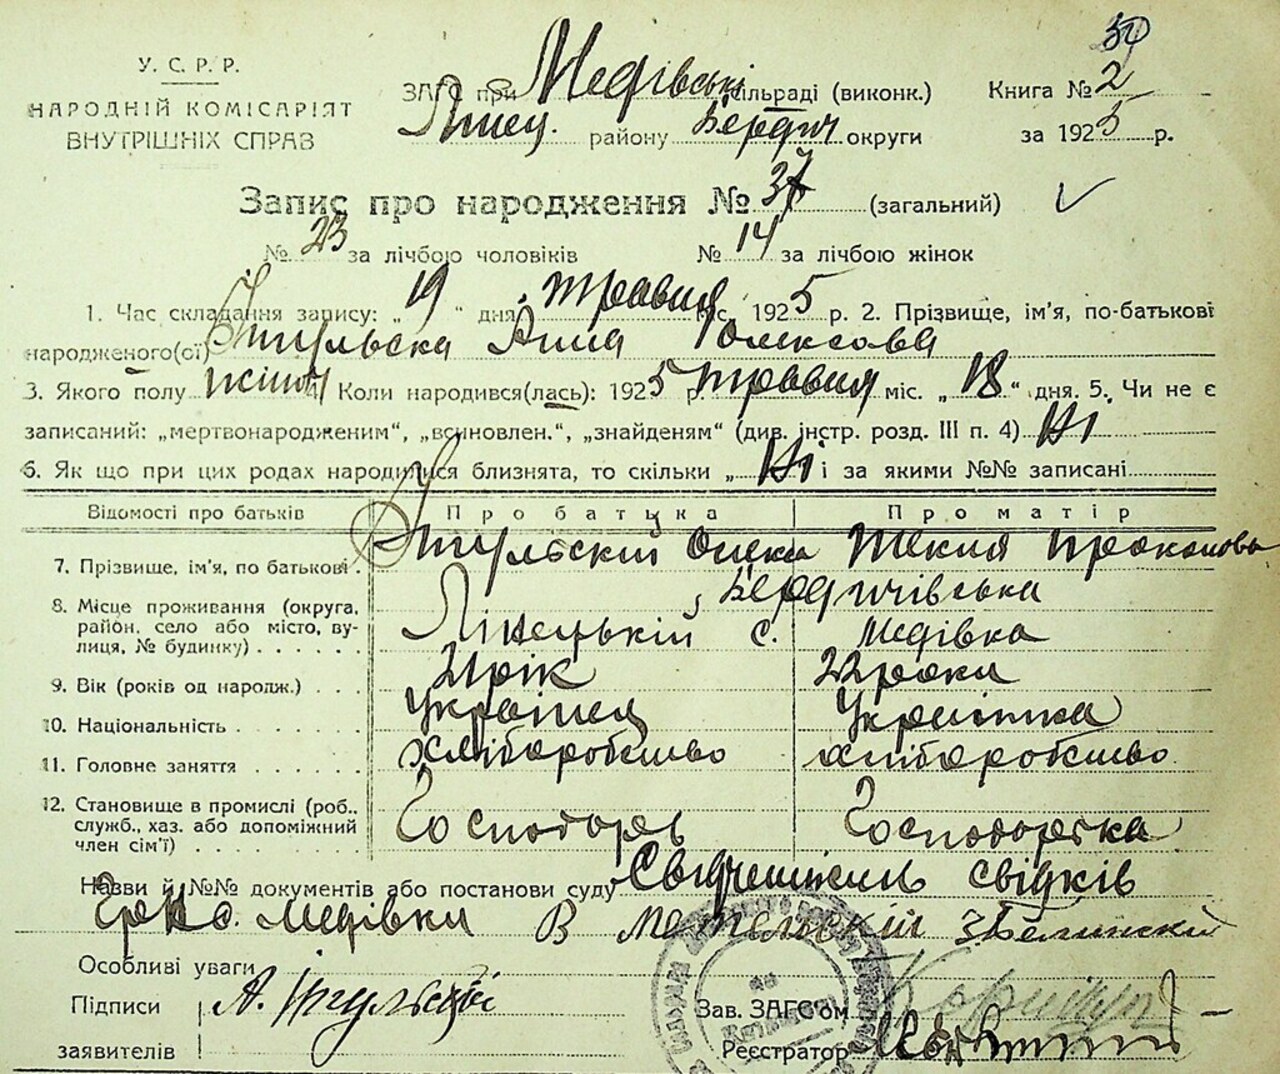 30
У. С. Р. Р.
НАРОДНІЙ КОМІСАРІЯТ
ВНУТРІШНІХ СПРАВ
ЗАГС при Медівські сільраді (виконк.)
Книга № 2
Линец. району Бердич округи
за 1925 р.
Запис про народження № 37 (загальний)
№ 23 за лічбою чоловіків № 14 за лічбою жінок
1. Час складання запису: „19“ дня травня міс. 1925 р. 2. Прізвище, ім'я, по-батькові
народженого(ої) Ганна Олексовa
3. Якого полу жіноч 4. Коли народився(лась): 1925 р. травня міс. „18“ дня. 5. Чи не є
записаний: „мертвонародженим“, „всиновлен.“, „знайденям“ (див. інстр. розд. III п. 4) Ні
6. Як що при цих родах народилися близнята, то скільки „Ні і за якими №№ записані
Відомості про батьків Про батька Про матір
7. Прізвище, ім'я, по батькові Олекса Текля
8. Місце проживання (округа, район, село або місто, вулиця, № будинку) Бердичівська
Лінецький с. Медівка
9. Вік (років од народж.) 21 рік 22 роки
10. Національність Українец Українка
11. Головне заняття хліборобство хліборобство
12. Становище в промислі (роб., служб., хаз. або допоміжний член сім'ї) Господарь Господарка
Назви й №№ документів або постанови суду свідків
с. Медівки В
Особливі уваги
Підписи
заявителів
А.
Зав. ЗАГС'ом
Реєстратор